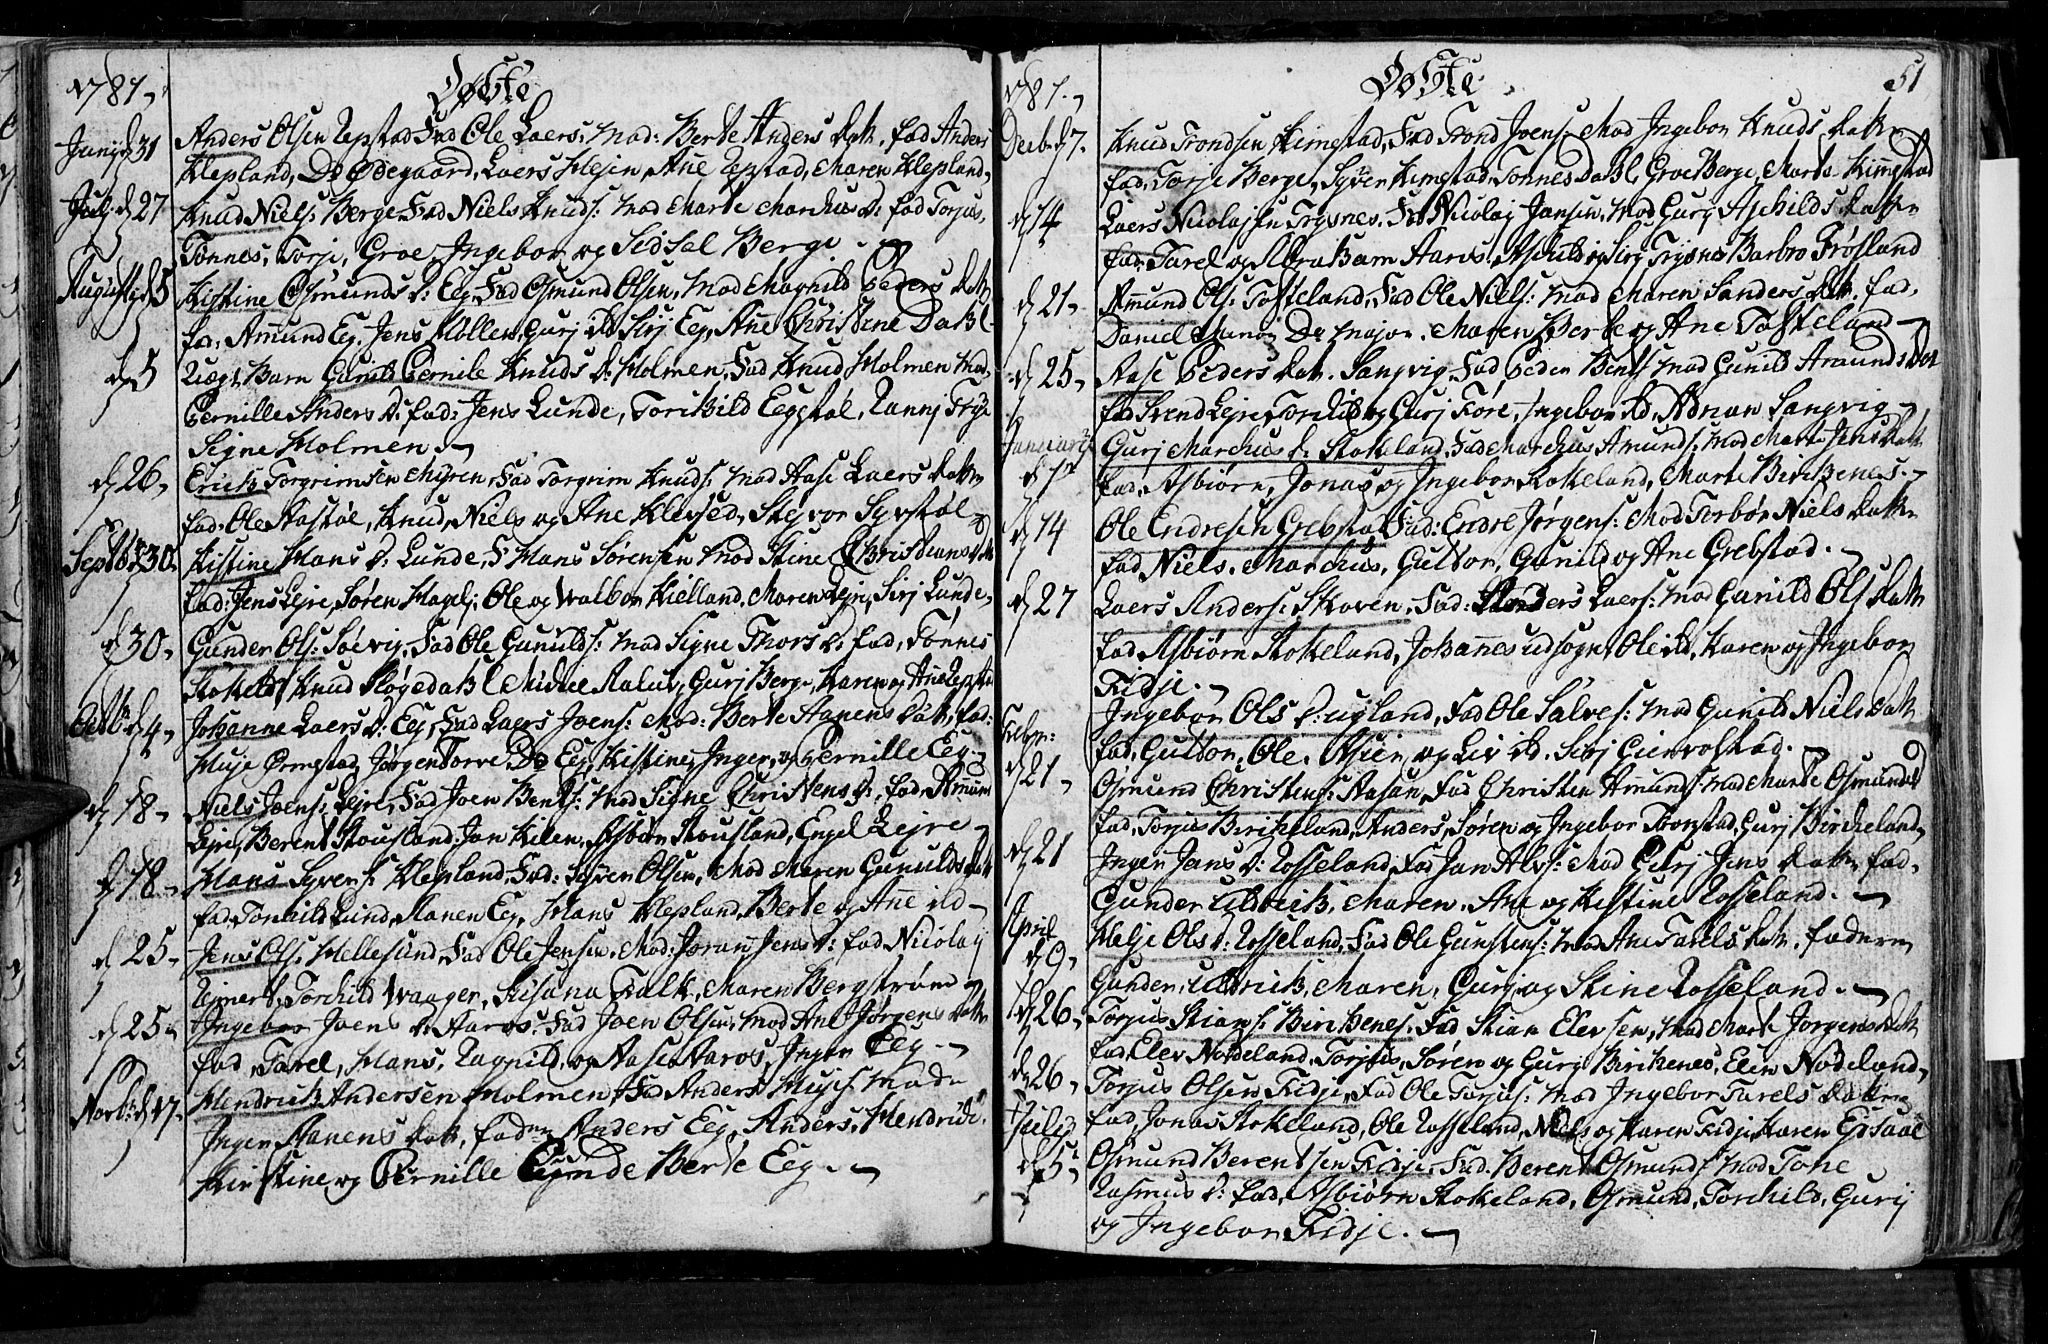 1787
Døbte
Junij d 31 Anders Olsen Repstad Fad Ole Laers: Mod: Berte Anders dat: fad Anders
Klepland, Do Ødegaard, Laers Hejen, Ane Repstad, Maren Klepland,
Julj d 27 Knud Niels: Berge Fad Niels Knuds: Mod Marte Marchus D: fad Torjus,
Tønnes, Torje, Groe, Ingebor og Sidsel Berge.
Augustij d 5 Kistine Osmunds D: Eeg, Fad Osmund Olsen, Mod Magnild Peders dat
fad: Amund Eeg, Jens Møllen, Gurj ibd Sirj Eeg, Ane Christine Dahl
d 5 Barn Gunild Pernile Knuds D: Holmen, Fad Knud Holmen Mod
Pernille Anders D: fad: Jens Lunde, Torchild Eegstøl,
Signe Holmen.
d 26 Erich Torgrimsen Myren, Fad Torgrim Knuds: Mod Aase Laers dat
fad: Ole Aastøl, Knud, Niels og Ane Klevsed,
Septbr d 30 Kistine Hans D: Lunde, F: Hans Sørensen Mod Stine Christians dat
fad: Jens Lejre, Søren Hagel; Ole og Walbor Kielland, Maren Lejre, Sirj Lunde,
d 30 Gunder Ols: Søevig, Fad Ole Gunulds: Mod Signe Thors D: fad, Tønnes
Stokeld Knud Fløgedahl Michel Gurj Berge, Karen og Ane Repstad
Octbr d 4 Johanne Laers D: Eeg, Fad Laers Joens: Mod: Berte Aanens Dat, fad:
Huje Ormstad, Jørgen Torve Do Eeg, Kistine, Inger og Pernille Eeg
d 18 Niels Joens: Lejre, Fad Joen Bents: Mod Signe Christens D, fad, Amund
Lejre, Berent Stousland: Jan Kilen, Asbiørn Stousland, Engel Lejre
d 18 Hans Syvers: Klepland Fad: Syver Olsen, Mod Maren Gunulds dat
fad, Torchild Lund, Aanen Eeg, Hans Klepland, Berte og Ane ibd
d 25 Jens Ols: Hellesund, Fad Ole Jensen, Mod: Joran Jens D: fad Nicolaij
Reinert, Torchild Waager, Susana Falk, Maren Bergstrøm
d 25 Ingebor Joens D: Aaros. Fad Joen Olsen, Mod Ane Jørgens dat
fad, Tarel, Hans, Ragnild, og Aase Aaros, Inger Eeg
Novbr d 17 Hendrich Andersen Holmen, Fad Anders Hujes: Mod
Inger Aanens dat, fadr Anders Eeg, Anders, Hendrich
Kirstine og Pernille Berte Eeg.
51
1787.
Døbte
Decb d 7. Knud Trondsen Kimestad, Fad Trond Joens: Mod Ingebor Knuds dat
fad, Torje Berge, Syver Kimestad, Tønnes Dahl, Groe Berge, Marte Kimestad
d 14 Laers Nicolajsen Trysnes. Fad Nicolaj Jansen, Mod Gurj Aschilds dat
fad, Tarel og Abraham Aaros, Aschild og Sirj Trysnes Barbro Frøsland
d 21 Amund Ols: Tofteland, Fad Ole Niels: Mod Maren Sanders dat: fad,
Daniel Do major. Maren Berte og Ane Tofteland
d 25 Aase Peders dat. Langvig, Fad Peder Bents: Mod Gunild Amunds Dat
fad Svend Lejre, Torchild og Gurj Føre, Ingebor ibd, Adrian Langvig
Januarij d 1st Gurj Marchus D: Stokeland, Fad Marchus Amunds: Mod Marte Jens dat
fad, Asbiørn, Jonas og Ingebor Stokeland, Marte Birkenes.
d 14 Ole Endresen Grebstad Fad: Endre Jørgens: Mod Torbør Niels dat
fad Niels, Marchus, Guttor, Gunild og Ane Grebstad.
d 27 Laers Anders: Skoven, Fad: Anders Laers: Mod Gunild Ols dat
fad Asbiørn Stokeland, Johannes udsogn, Ole ibd, Karen og Ingebor
Fidje.
Febr: Ingebør Ols D: ugland, Fad Ole Salves: Mod Gunild Niels dat
fad, Guttor, Ole, Osien, og Liv ibd. Sirj Gievolstad.
d 21 Osmund Christens: Aasan, Fad Christen Amunds: Mod Marte Osmunds D
fad, Torjus Birkeland, Anders, Søren og Ingebor Torstad, Gurj Birckeland,
d 21 Inger Jans D: Rosseland, Fad Jan Alvs: Mod Jens dat, fad,
Gunder Uldrich, Maren, Ane og Kistine Rosseland.
April d 9 Helje Ols D: Rosseland, Fad Ole Gunstens: Mod Ane Tarels dat, faderne
Gunder, Uldrich, Maren, Gurj og Stine Rosseland.
d 26 Torjus Stians: Birkenes. Fad Stian Elevsen, Mod Marte Jørgens dat
fad, Elev Nodeland, Torjus, Søren og Gurj Birkenes, Elen Nodeland,
d 26 Torjus Olsen Fidje, Fad Ole Torjus: Mod Ingebor Tarels dat
fad, Jonas Stokeland, Ole Rosseland, Niels og Karen Fidje, Karen
Julij d 5 Osmund Berentsen Fidje. Fad. Berent Osmunds: Mod Tone
Rasmus D: fad, Asbiørn Stokeland, Osmund, Torchild, Gurij
og Ingebor Fidje.